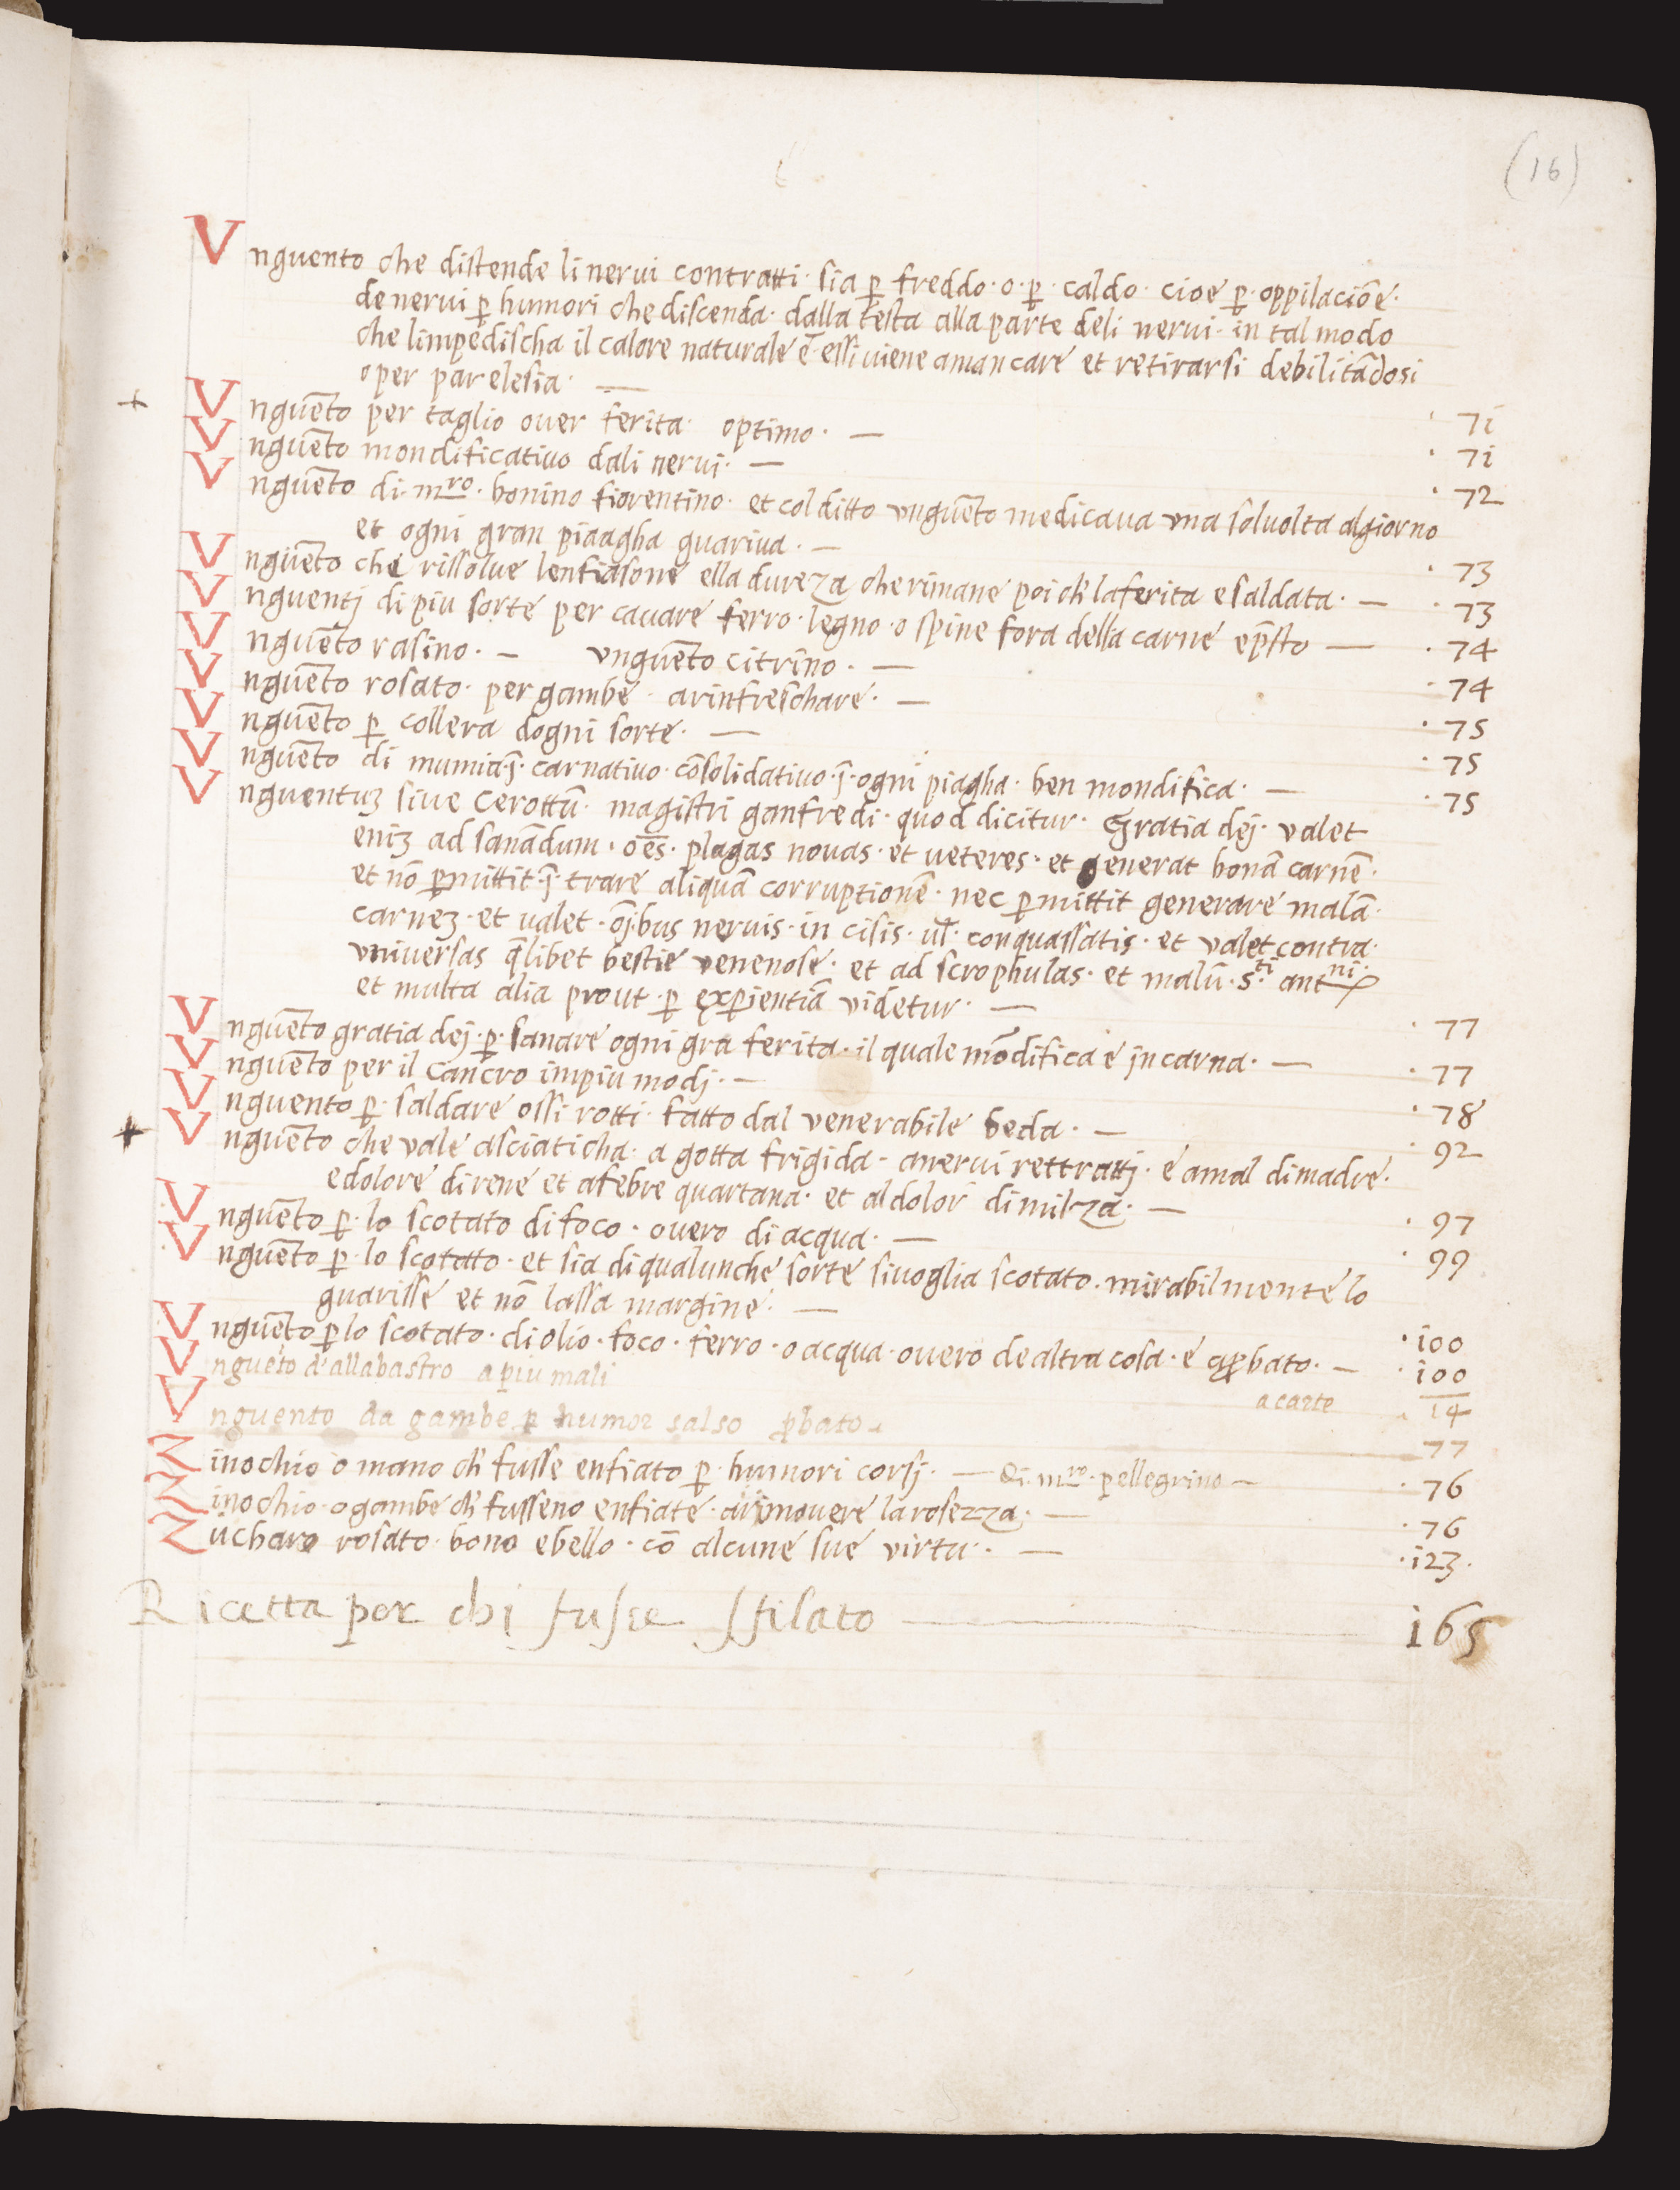 (16)
Vnguento che distende li nerui contratti · sia p̱ freddo · o · p̱ · caldo · cioè p̱ · oppilaciōe ·
de nerui p̱ humori che discenda · dalla testa alla parte deli nerui · in tal modo
che limpedischa il calore naturale ē essi uiene amancare et retirarsi debilitādosi
o per parelesia · — · 7i
Vnguēto per taglio ouer ferita · optimo · — · 7i
Vnguēto mondificatiuo dali nerui · — · 72
Vnguēto di · mro · bonino fiorentino · et col ditto vnguēto medicaua vna sol uolta al giorno
et ogni gran piaagha guariua · — · 73
Vnguēto che rissolue lenfiasone ella dureza che rimane poi ch' la ferita e saldata · — · 73
Vnguentj di piu sorte per cauare ferro · legno · o spine fora della carne e p̄sto — · 74
Vnguēto rasino · — vnguēto citrino · — · 74
Vnguēto rosato · per gambe · arinfreschare · — · 75
Vnguēto p̱ collera dogni sorte · — · 75
Vnguēto di mumia · j̄ · carnatiuo · cōsolidatiuo · j̄ · ogni piagha · ben mondifica · — · 75
Vnguentuȝ siue Cerottū · magistri ganfredi · quod dicitur · Gratia dej · valet
eniȝ ad sanādum · oēs · plagas nouas · et ueteres · et generat bonā carnē ·
et nō p̱mittit · j̄ · trare aliquā corruptionē · nec p̱mittit generare malā ·
carneȝ · et ualet · oj̄bus neruis · in cisis · ul̄ · conquassatis · et valet contra ·
vniuersas q̄libet bestie venenose · et ad scrophulas · et malū · s.ti antni ·
et multa alia prout · p̱ exp̱ientiā videtur · — · 77
Vnguēto gratia dej · p̱ · sanare ogni gra ferita · il quale mōdifica e jncarna · — · 77
Vnguēto per il Cancro impiu modj · — · 78
Vnguento p̱ · saldare ossi rotti · fatto dal venerabile beda · — · 92
Vnguēto che vale asciaticha · a gotta frigida · anerui rettrattj · e amal di madre ·
e dolore di rene et afebre quartana · et al dolor di milza · — · 97
Vnguēto p̱ · lo scotato di foco · ouero di acqua · — · 99
Vnguēto p̱ · lo scotatto · et sia di qualunche sorte si uoglia scotato · mirabilmente lo
guarisse et nō lassa margine · — · i00
Vnguēto p̱ lo scotato · di olio · foco · ferro · o acqua · ouero de altra cosa · e ap̱bato · — · i00
Vnguēto d'allabastro a piu mali a carte 14
Vnguento da gambe p̱ humor salso p̱bato · 77
Zinochio o mano ch' fusse enfiato p̱ · humori corsj · — di · mro · pellegrino — · 76
Zinochio · o gambe ch' fusseno enfiate · arimouere la rosezza · — · 76
Zucharo rosato · bono e bello · cō alcune sue virtu · — · i23 ·
Ricetta per chi fusse sfilato — i65